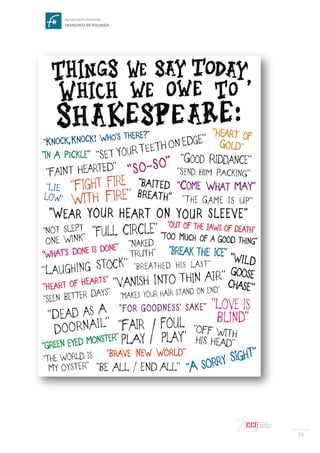 Agrupamento de Escolas
FRANCISCO DE HOLANDA
THINGS WE SAY TODAY,
WHICH WE OWE TO
SHAKESPEARE:
"KNOCK, KNOCK! WHO'S THERE?"
"HEART OF
GOLD"
"IN A PICKLE"
"SET YOUR TEETH ON EDGE"
"FAINT HEARTED"
"SO-SO"
"GOOD RIDDANCE"
"SEND HIM PACKING"
"LIE
LOW"
"FIGHT FIRE
WITH FIRE"
"BAITED
BREATH"
"COME WHAT MAY"
"THE GAME IS UP"
"WEAR YOUR HEART ON YOUR SLEEVE"
"NOT SLEPT
ONE WINK"
"FULL CIRCLE"
"OUT OF THE JAWS OF DEATH"
"TOO MUCH OF A GOOD THING"
"WHAT'S DONE IS DONE"
"NAKED
TRUTH"
"BREAK THE ICE"
"WILD
GOOSE
CHASE"
"LAUGHING STOCK"
"BREATHED HIS LAST"
"HEART OF HEARTS"
"VANISH INTO THIN AIR"
"SEEN BETTER DAYS"
"MAKES YOUR HAIR STAND ON END"
"DEAD AS A
DOORNAIL"
"FOR GOODNESS' SAKE"
"LOVE IS
BLIND"
"FAIR / FOUL
PLAY / PLAY"
"OFF WITH
HIS HEAD"
"GREEN EYED MONSTER"
"THE WORLD IS
MY OYSTER"
"BRAVE NEW WORLD"
"BE ALL / END ALL"
"A SORRY SIGHT"
16